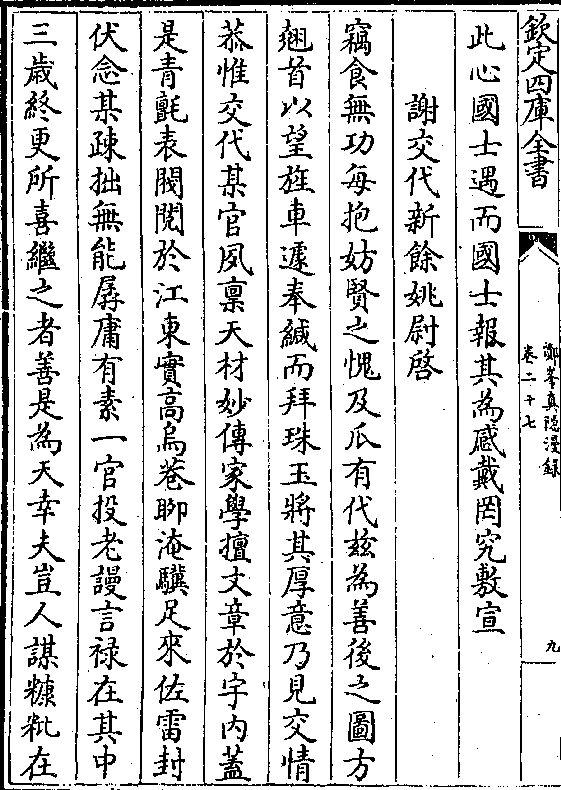 欽定四庫全書
鄮峯真隱漫録
卷二十七
九
此心國士遇而國士報其為感戴罔究敷宣
謝交代新餘姚尉啓
竊食無功每抱妨賢之愧及瓜有代兹為善後之圖方
翹首以望旌車遽奉緘而拜珠玉將其厚意乃見交情
恭惟交代某官夙禀天材妙傳家學擅文章於宇内蓋
是青氊表閥閲於江東實高烏巷聊淹驥足來佐雷封
伏念某疎拙無能孱庸有素一官投老謾言禄在其中
三歲終更所喜繼之者善是為天幸夫豈人謀糠粃在